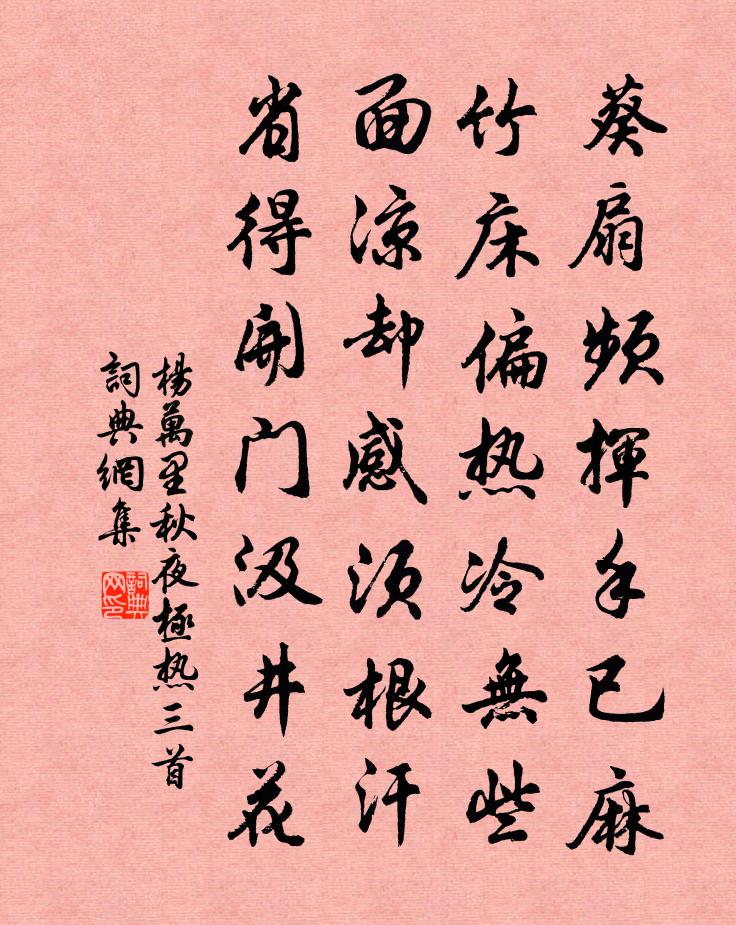 葵扇頻揮手已麻
竹床偏热冷無些
面凉却感须根汗
省得開门汲井花
楊萬里秋夜極热三首
詞典網集
詞典网印